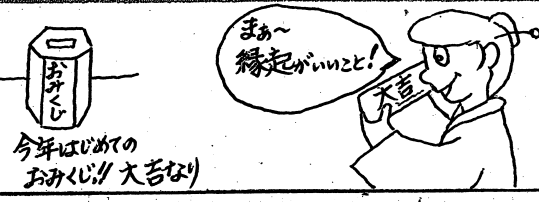 おみくじ
今年はじめての
おみくじ!! 大吉なり
まぁ〜
縁起がいいこと!
大吉